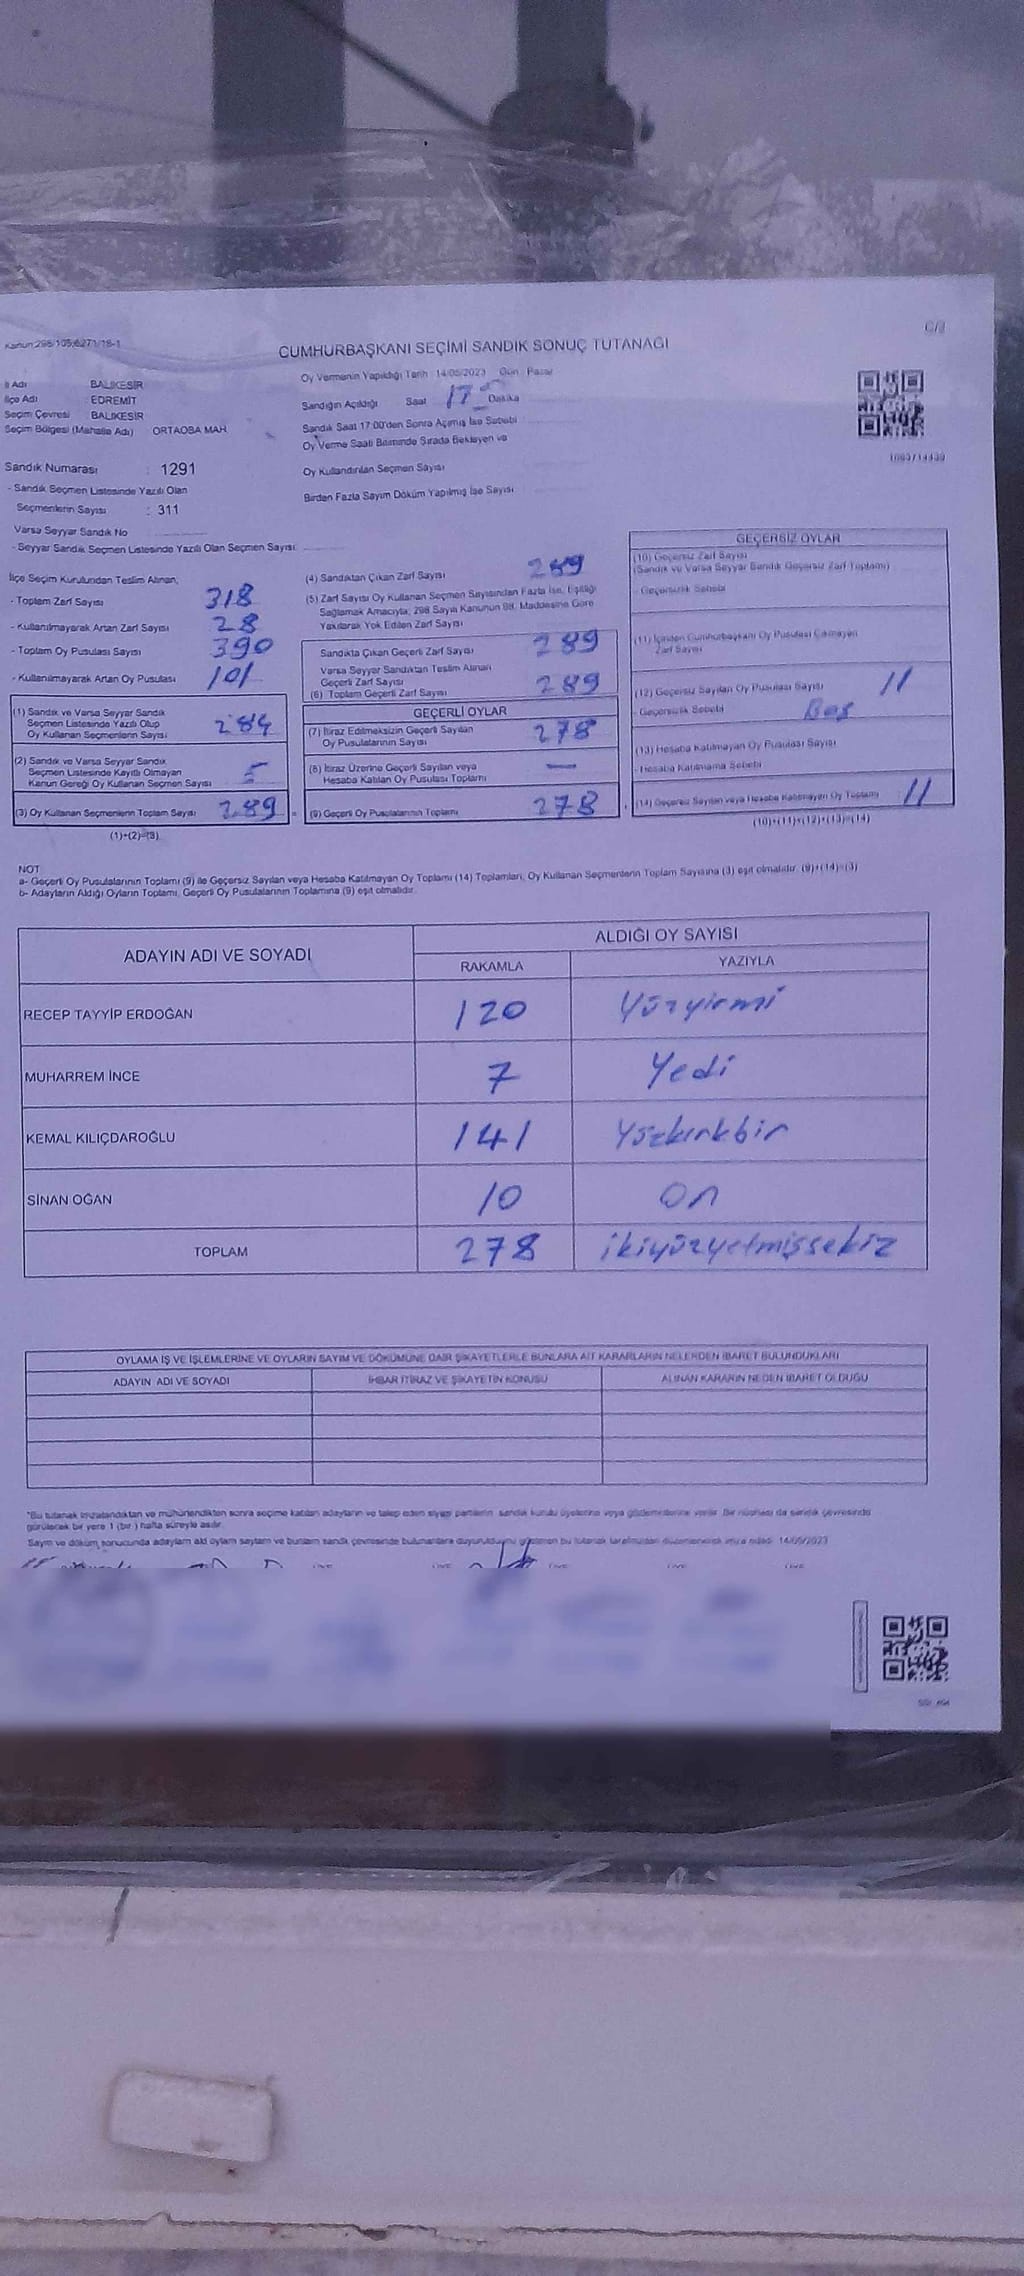 Kanun:298/105,6271/18-1
C/2
CUMHURBAŞKANI SEÇİMİ SANDIK SONUÇ TUTANAĞI
İl Adı BALIKESİR
İlçe Adı : EDREMİT
Seçim Çevresi BALIKESİR
Seçim Bölgesi (Mahalle Adı) ORTAOBA MAH
Sandık Numarası : 1291
- Sandık Seçmen Listesinde Yazılı Olan
Seçmenlerin Sayısı : 311
Varsa Seyyar Sandık No
- Seyyar Sandık Seçmen Listesinde Yazılı Olan Seçmen Sayısı:
Oy Vermenin Yapıldığı Tarih : 14/05/2023 Gün : Pazar
Sandığın Açıldığı Saat 17 Dakika
Sandık Saat 17:00'den Sonra Açılmış İse Sebebi
Oy Verme Saati Bitiminde Sırada Bekleyen ve
Oy Kullandırılan Seçmen Sayısı
Birden Fazla Sayım Döküm Yapılmış İse Sayısı
İlçe Seçim Kurulundan Teslim Alınan;
- Toplam Zarf Sayısı 318
- Kullanılmayarak Artan Zarf Sayısı 28
- Toplam Oy Pusulası Sayısı 390
- Kullanılmayarak Artan Oy Pusulası 101
(1) Sandık ve Varsa Seyyar Sandık
Seçmen Listesinde Yazılı Olup
Oy Kullanan Seçmenlerin Sayısı 284
(2) Sandık ve Varsa Seyyar Sandık
Seçmen Listesinde Kayıtlı Olmayan
Kanun Gereği Oy Kullanan Seçmen Sayısı 5
(3) Oy Kullanan Seçmenlerin Toplam Sayısı 289
(1)+(2)=(3)
(4) Sandıktan Çıkan Zarf Sayısı 289
(5) Zarf Sayısı Oy Kullanan Seçmen Sayısından Fazla İse, Eşitliği
Sağlamak Amacıyla; 298 Sayılı Kanunun 98. Maddesine Göre
Yakılarak Yok Edilen Zarf Sayısı
Sandıkta Çıkan Geçerli Zarf Sayısı 289
Varsa Seyyar Sandıktan Teslim Alınan
Geçerli Zarf Sayısı
(6) Toplam Geçerli Zarf Sayısı 289
GEÇERLİ OYLAR
(7) İtiraz Edilmeksizin Geçerli Sayılan
Oy Pusulalarının Sayısı 278
(8) İtiraz Üzerine Geçerli Sayılan veya
Hesaba Katılan Oy Pusulası Toplamı —
(9) Geçerli Oy Pusulalarının Toplamı 278
GEÇERSİZ OYLAR
(10) Geçersiz Zarf Sayısı
(Sandık ve Varsa Seyyar Sandık Geçersiz Zarf Toplamı)
- Geçersizlik Sebebi
(11) İçinden Cumhurbaşkanı Oy Pusulası Çıkmayan
Zarf Sayısı
(12) Geçersiz Sayılan Oy Pusulası Sayısı 11
- Geçersizlik Sebebi Boş
(13) Hesaba Katılmayan Oy Pusulası Sayısı
- Hesaba Katılmama Sebebi
(14) Geçersiz Sayılan veya Hesaba Katılmayan Oy Toplamı 11
(10)+(11)+(12)+(13)=(14)
NOT
a- Geçerli Oy Pusulalarının Toplamı (9) ile Geçersiz Sayılan veya Hesaba Katılmayan Oy Toplamı (14) Toplamları, Oy Kullanan Seçmenlerin Toplam Sayısına (3) eşit olmalıdır. (9)+(14)=(3)
b- Adayların Aldığı Oyların Toplamı, Geçerli Oy Pusulalarının Toplamına (9) eşit olmalıdır.
ADAYIN ADI VE SOYADI ALDIĞI OY SAYISI
RAKAMLA YAZIYLA
RECEP TAYYİP ERDOĞAN 120 Yüzyirmi
MUHARREM İNCE 7 Yedi
KEMAL KILIÇDAROĞLU 141 Yüzkırkbir
SİNAN OĞAN 10 On
TOPLAM 278 ikiyüzyetmişsekiz
OYLAMA İŞ VE İŞLEMLERİNE VE OYLARIN SAYIM VE DÖKÜMÜNE DAİR ŞİKAYETLERLE BUNLARA AİT KARARLARIN NELERDEN İBARET BULUNDUKLARI
ADAYIN ADI VE SOYADI İHBAR İTİRAZ VE ŞİKAYETİN KONUSU ALINAN KARARIN NEDEN İBARET OLDUĞU
*Bu tutanak imzalandıktan ve mühürlendikten sonra seçime katılan adayların ve talep eden siyasi partilerin sandık kurulu üyelerine veya gözlemcilerine verilir. Bir nüshası da sandık çevresinde
görülecek bir yere 1 (bir) hafta süreyle asılır.